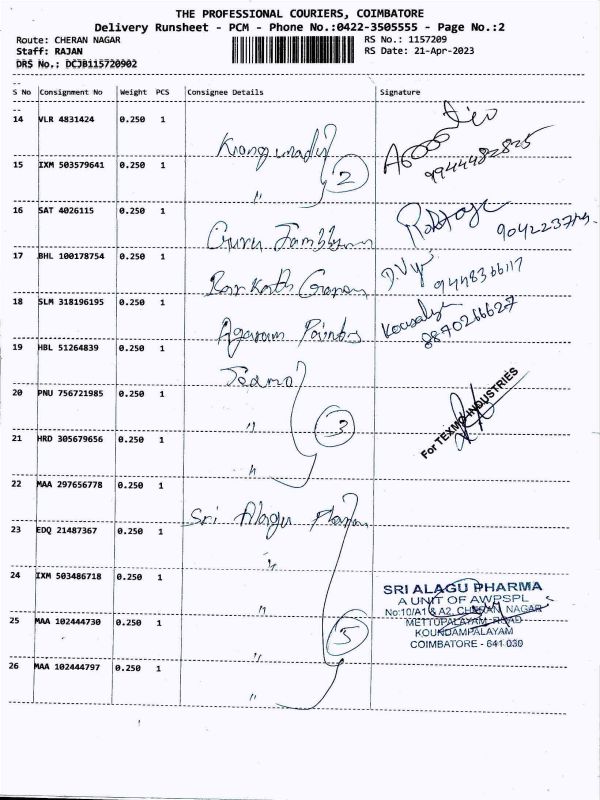 THE PROFESSIONAL COURIERS, COIMBATORE
Delivery Runsheet - PCM - Phone No.:0422-3505555 - Page No.:2
Route: CHERAN NAGAR RS No.: 1157209
Staff: RAJAN RS Date: 21-Apr-2023
DRS No.: DCJB115720902
S No Consignment No Weight PCS Consignee Details Signature
14 VLR 4831424 0.250 1
9944482825
15 IXM 503579641 0.250 1 " 2
16 SAT 4026115 0.250 1 Guru
17 BHL 100178754 0.250 1
9448366117
18 SLM 318196195 0.250 1 Agaram Points Kousalya
8870266627
19 HBL 51264839 0.250 1
20 PNU 756721985 0.250 1 " 3 For TEXMO INDUSTRIES
21 HRD 305679656 0.250 1 "
22 MAA 297656778 0.250 1 Sri Alagu
23 EDQ 21487367 0.250 1 "
24 IXM 503486718 0.250 1 "
SRI ALAGU PHARMA
A UNIT OF AWPSPL
No:10/A1 & A2, CHERAN NAGAR
25 MAA 102444730 0.250 1 " 5
METTUPALAYAM ROAD
KOUNDAMPALAYAM
COIMBATORE - 641 030
26 MAA 102444797 0.250 1 "